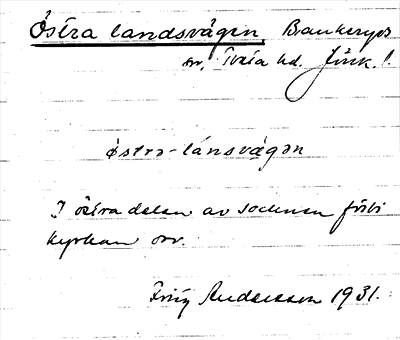 Östra landsvägen, Bankeryds
sn, Tveta hd. Jönk. l.
östra-lánsvä́gən
I östra delen av socknen förbi
kyrkan osv.
Fritz Andersson 1931.